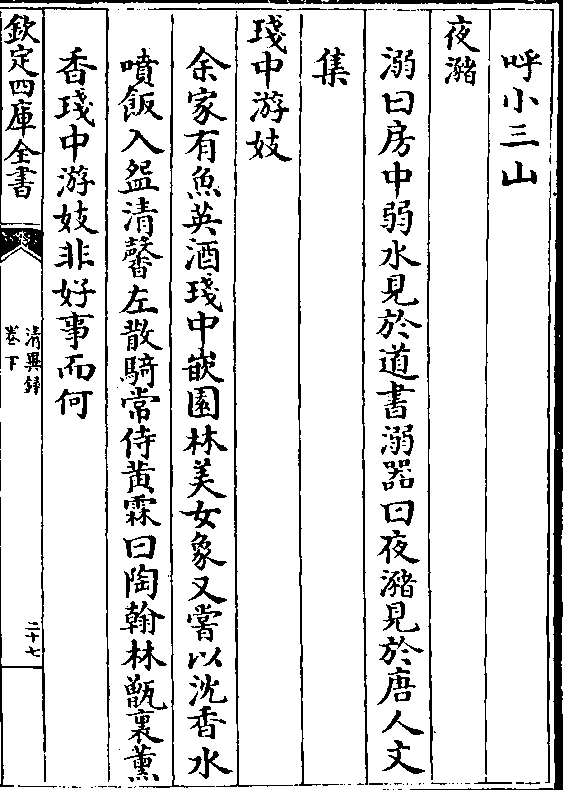 呼小三山
夜瀦
溺曰房中弱水見於道書溺器曰夜瀦見於唐人文
集
琖中游妓
余家有魚英酒琖中嵌園林美女象又嘗以沈香水
噴飯入盌清馨左散騎常侍黄霖曰陶翰林甑裏薰
香琖中游妓非好事而何
欽定四庫全書
清異録
卷下
二十七